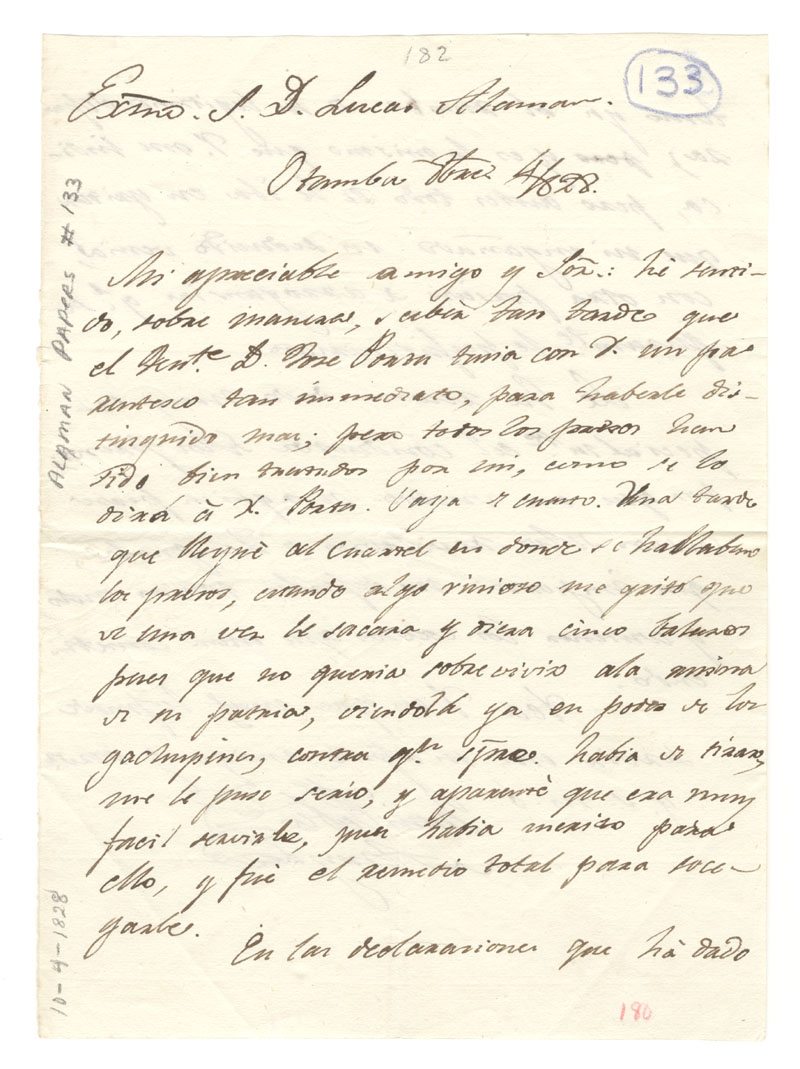 182
133
Exmo. S. D. Lucas Alaman.
Otumba 8bre. 4/828.
Mi apreciable amigo y Sor.: hé senti-
do, sobre manera, saber tan tarde que
el Tente. D. Jose Portu tenia con V. un pa
rentesco tan immediato, para haberle dis-
tinguido mas; pero todos los presos han
sido bien tratados por mi, como se lo
dirá à V. Portu. Vaya el cuento. Una tarde
que lleguè al cuartel en donde se hallaban
los presos, cuando algo rinioso me gritó que
de una vez le sacara y diera cinco balazos
pues que no queria sobrevivir ala ruina
de su patria, viendola ya en poder de los
gachupines, contra qn. spre. habia de tirar,
me le puse serio, y aparentè que era muy
facil servirle, pues habia merito para
ello, y fue el remedio total para soce-
garle.
En las declaraciones que hà dado
ALAMAN PAPERS # 133
10-4-1828
180